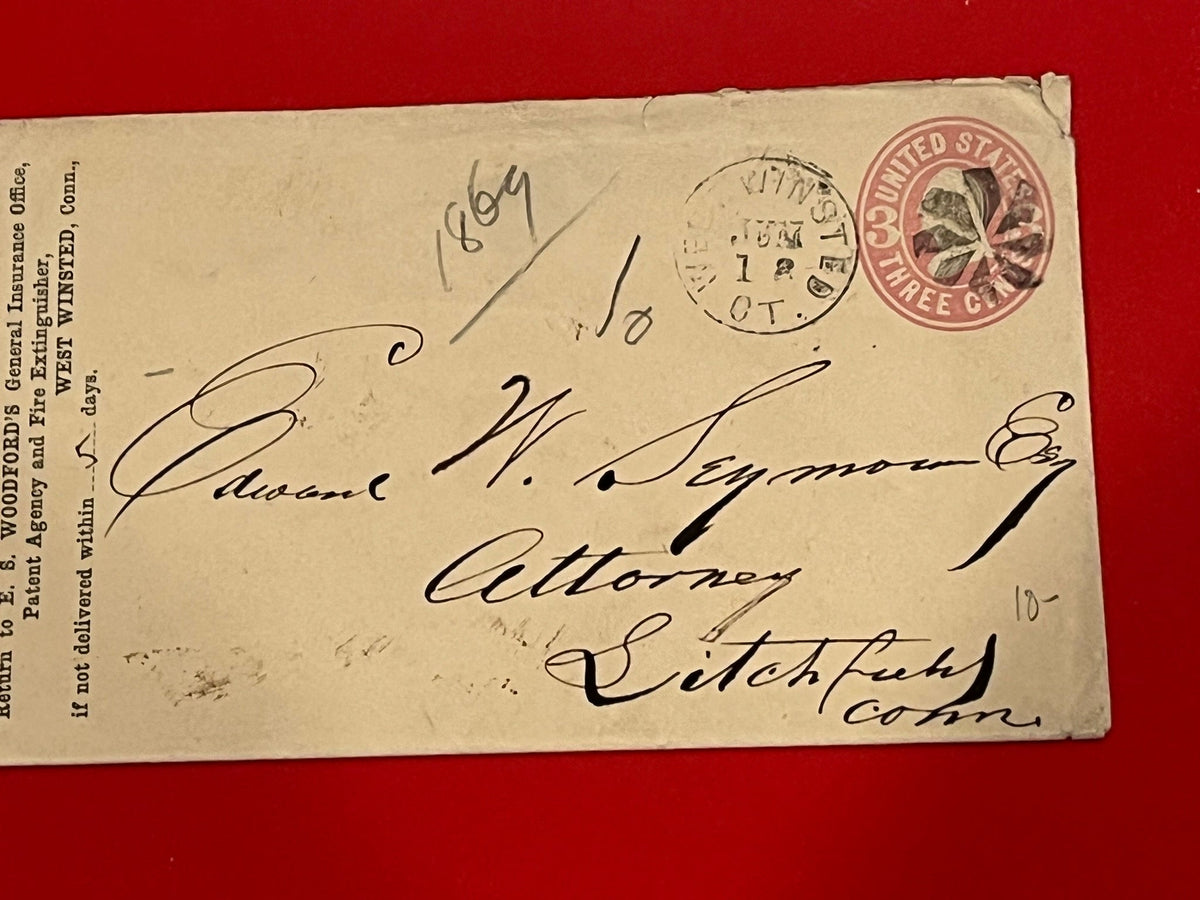 Return to E. S. WOODFORD'S General Insurance Office,
Patent Agency and Fire Extinguisher,
WEST WINSTED, Conn.,
if not delivered within ...5... days.
1869
10
WEST WINSTED
JUN
12
CT.
UNITED STATES
3 3
THREE CENTS
Edward W. Seymour Esq
Attorney
Litchfield
Conn.
10-